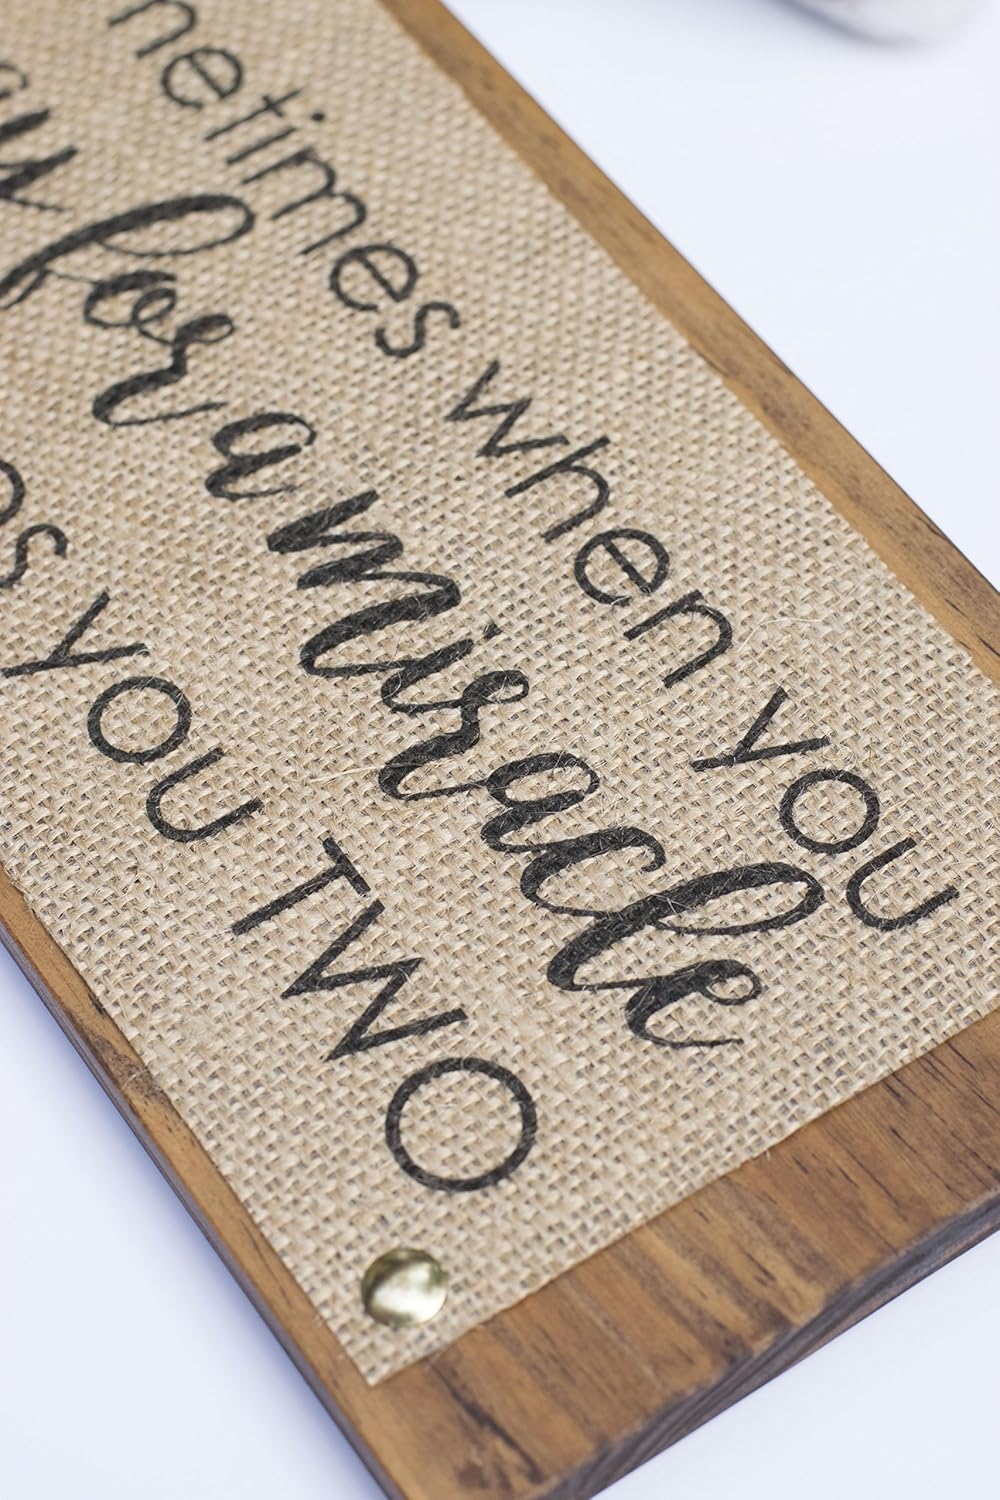 netimes when you
for a miracle
you TWO